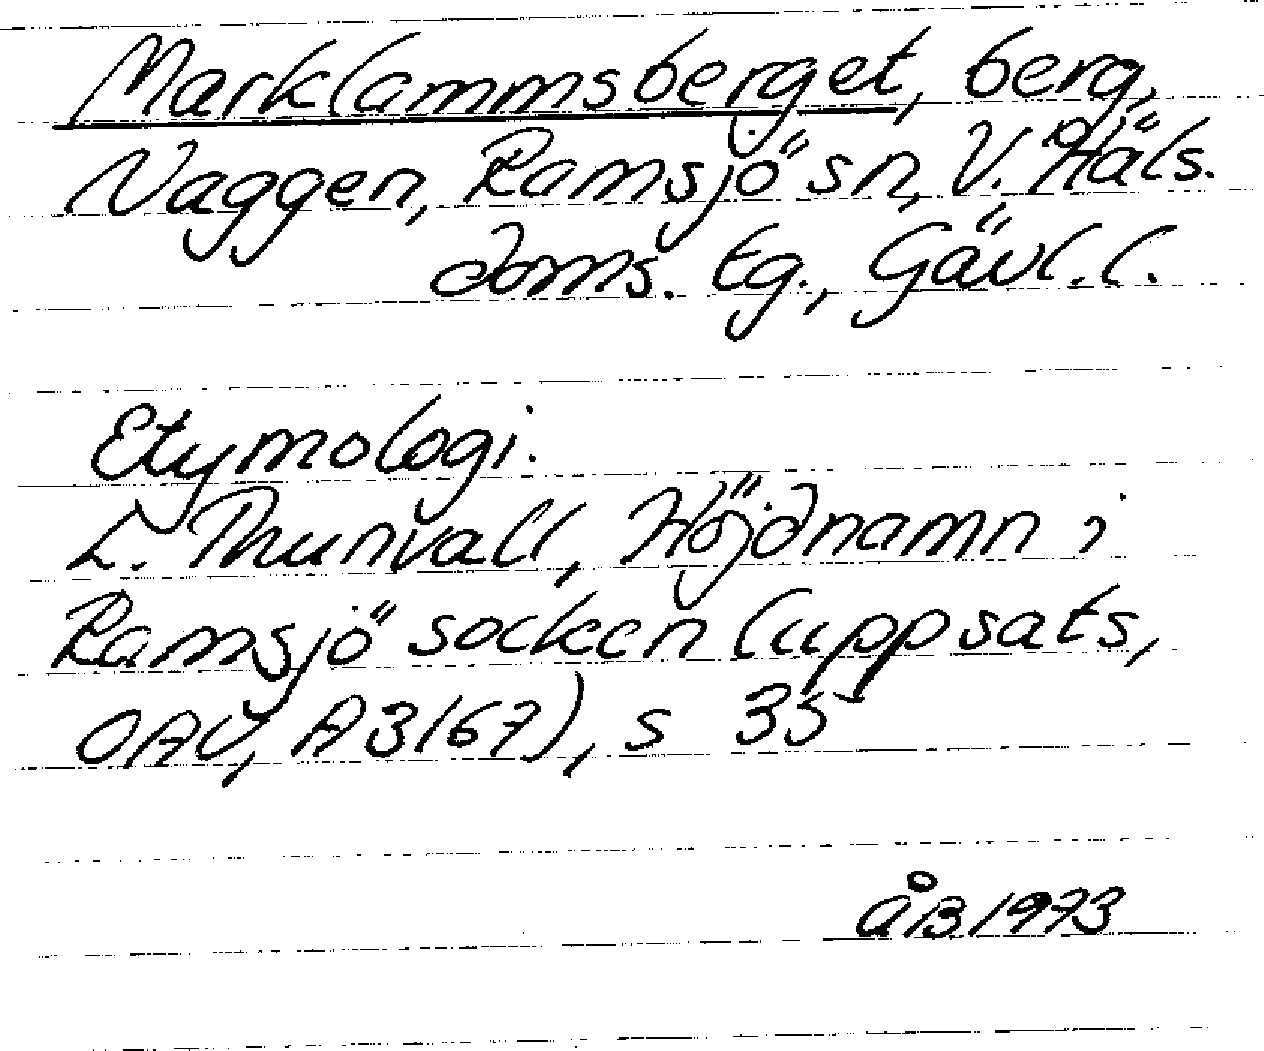 Marklammsberget, berg,
Naggen, Ramsjö sn, V. Häls.
doms. tg., Gävl.l.
Etymologi.
L. Thunvall, Höjdnamn i
Ramsjö socken (uppsats,
OAU, A3167), s 35
åB 1973